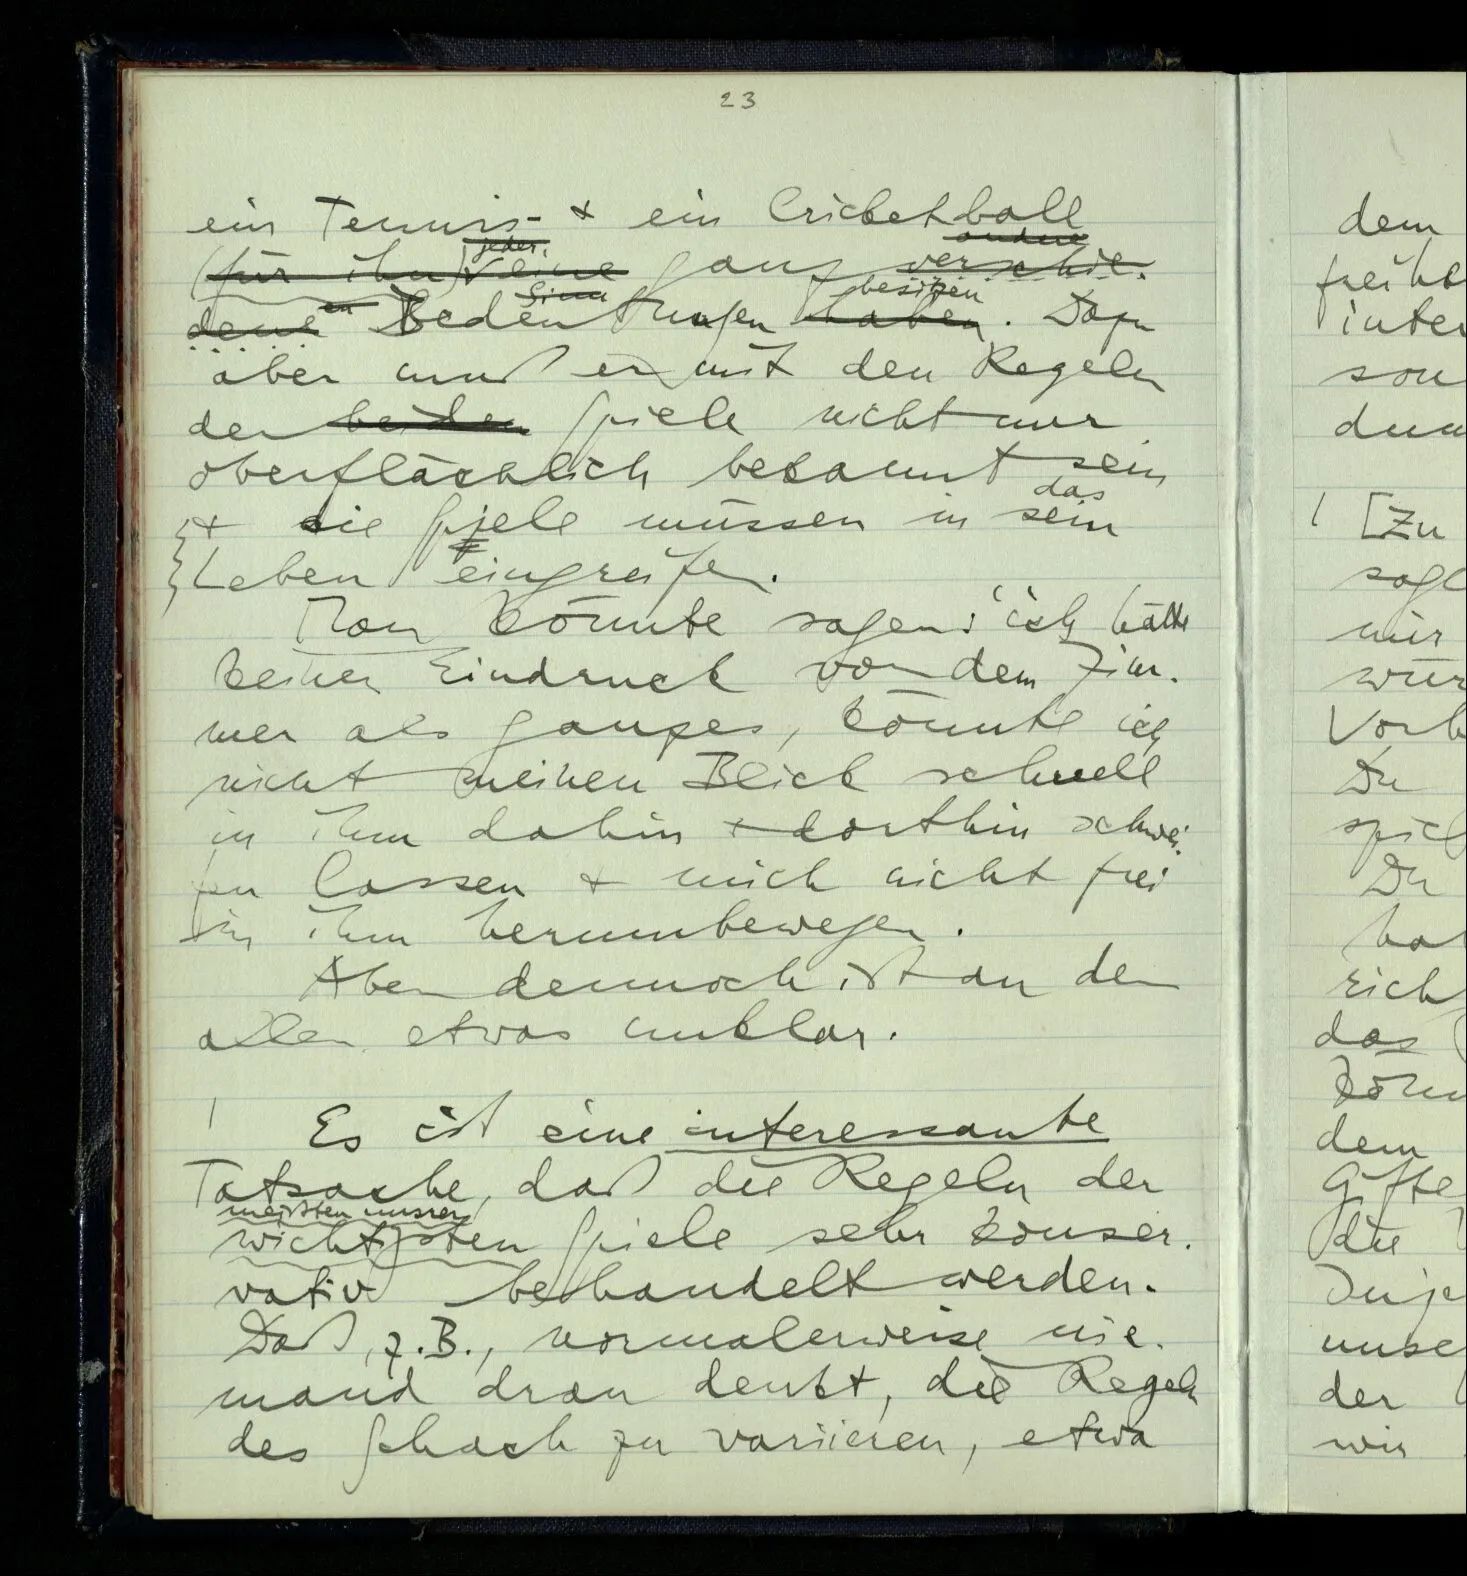 23
ein Tennis- + ein Cricketball
jeder andere
(für ihn) eine ganz verschie-
en Sinn besitzen
dene Bedeutungen haben. Dazu
aber muß er mit den Regeln
der beiden Spiele nicht nur
oberflächlich bekannt sein
das
+ die Spiele müssen in sein
Leben eingreifen.
Man könnte sagen: ‘ich hätte
keinen Eindruck von dem Zim-
mer als ganzes, könnte ich
nicht meinen Blick schnell
in ihm dahin + dorthin schwei-
fen lassen + mich nicht frei
in ihm herumbewegen.
Aber dennoch ist an dem
allen etwas unklar.
| Es ist eine interessante
Tatsache, daß die Regeln der
meisten unsrer
wichtigsten Spiele sehr konser-
vativ behandelt werden.
Daß, z.B., normalerweise nie-
mand dran denkt, die Regeln
des Schach zu variieren, etwa
dem
inter
son
| [Zu
mir
Du
Du
das
dem
die
unse
der
wir